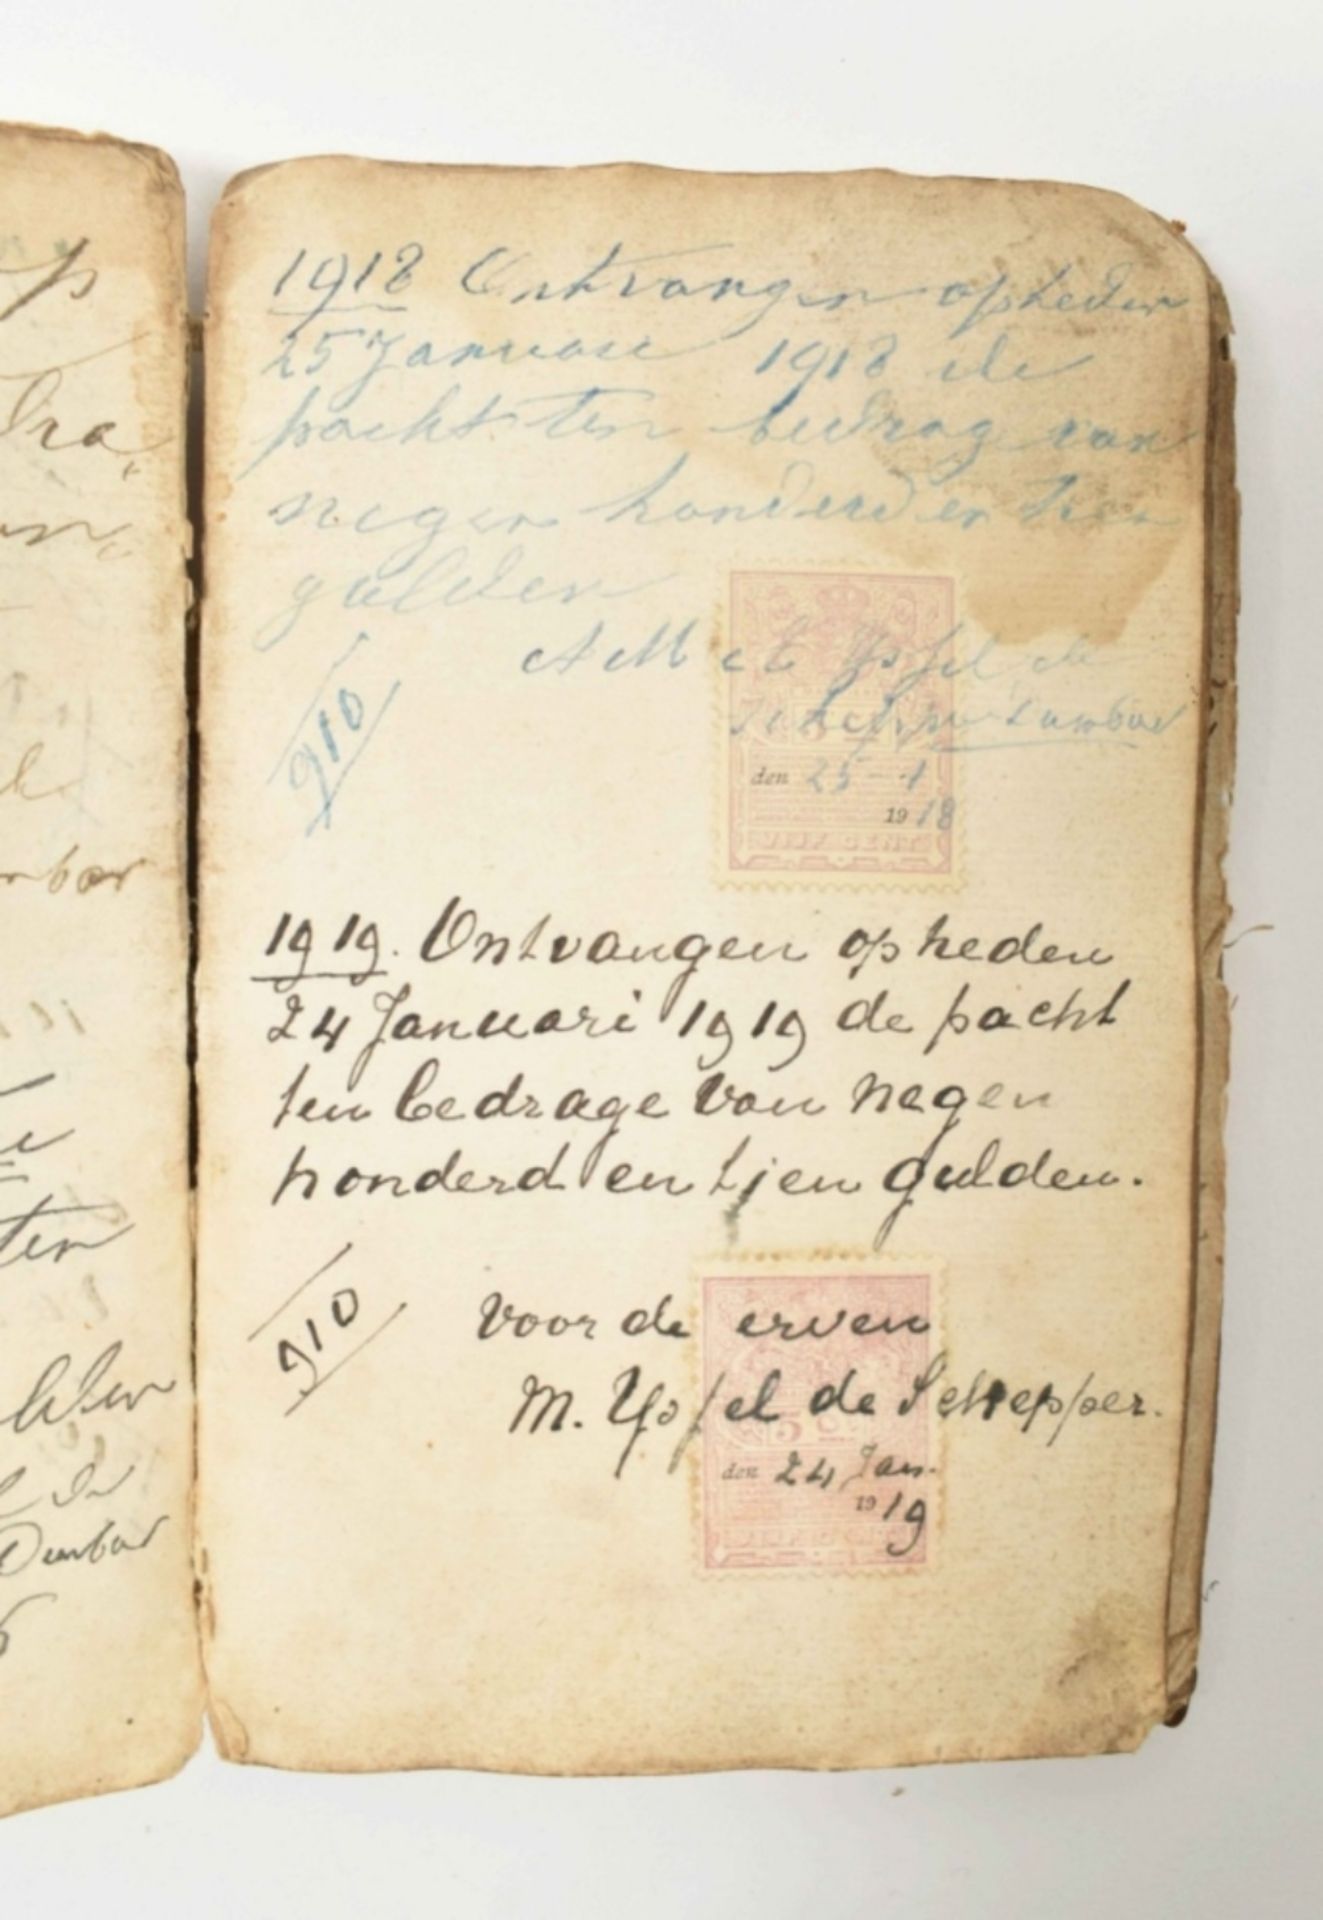 1918 Ontvangen op heden
25 Januari 1918 de
pacht ten bedrag van
negen honderd en tien
gulden
910
Ypsel de
Schepper Dumbar
den 25-1
1918
VIJF CENT
1919. Ontvangen op heden
24 Januari 1919 de pacht
ten bedrage van negen
honderd en tien gulden.
910
voor de erven
M. Ypsel de Schepper.
den 24 Jan.
1919